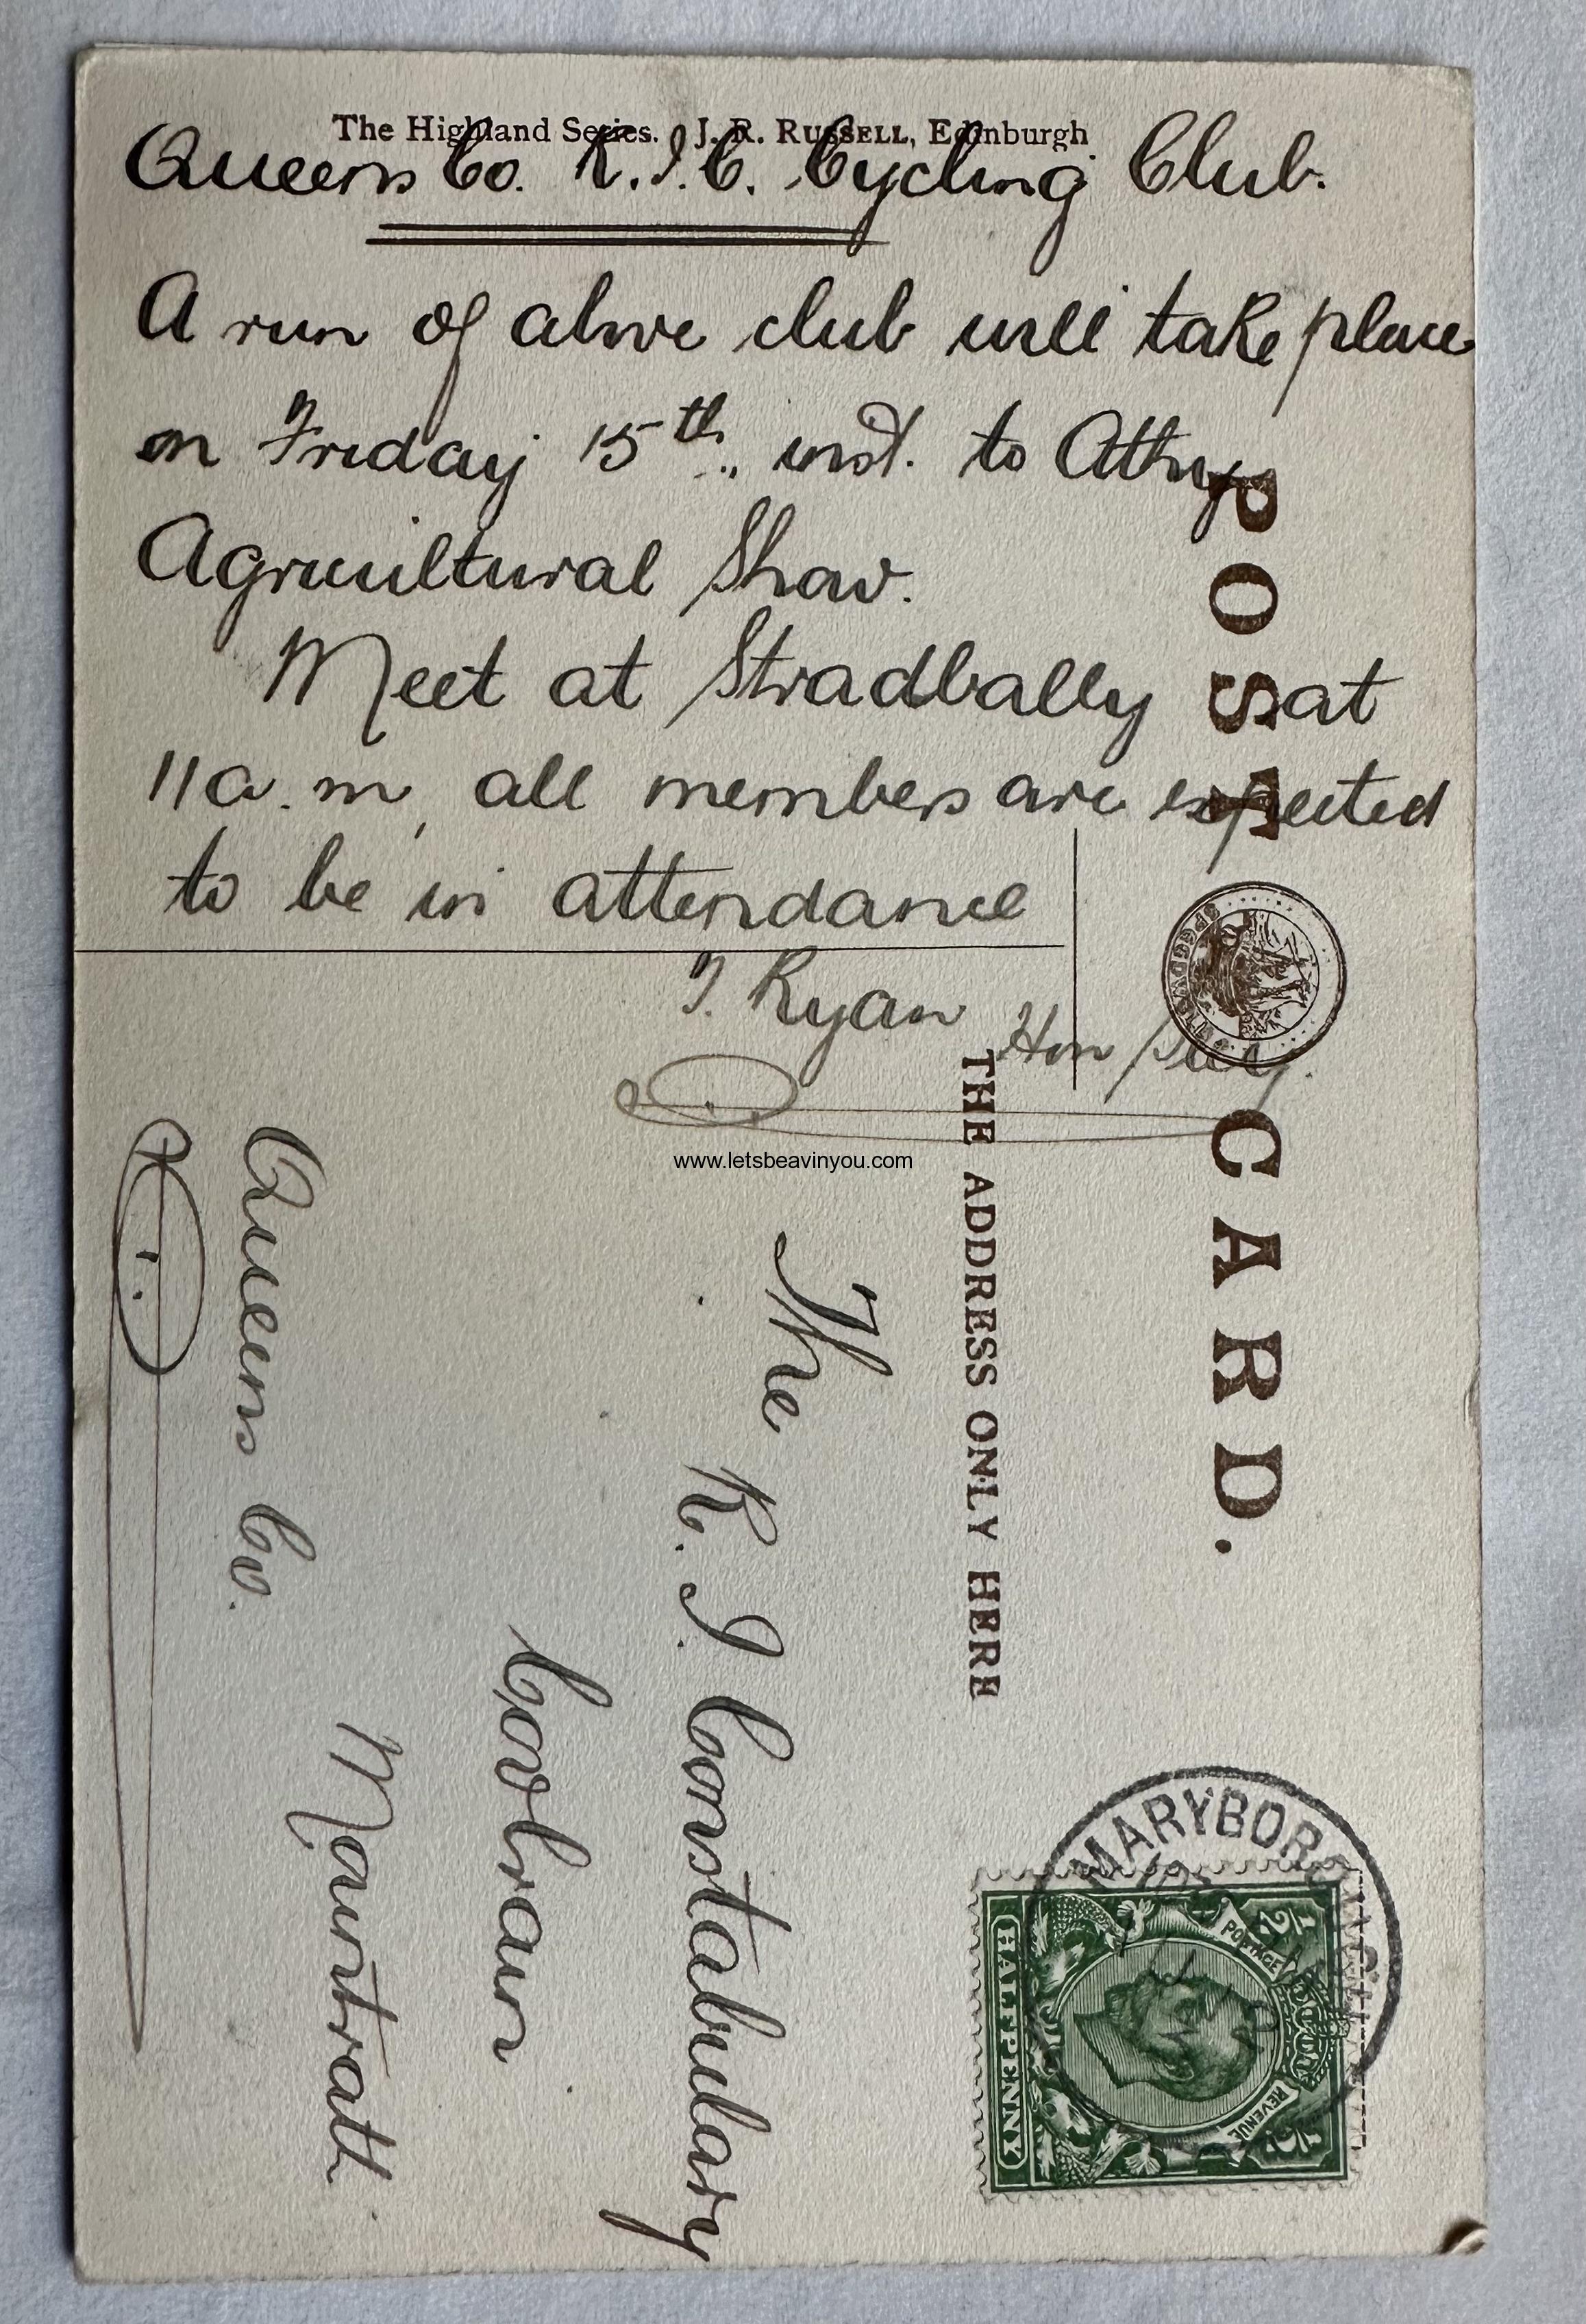 The Highland Series. J. R. RUSSELL, Edinburgh
Queens Co. R.I.C. Cycling Club.
A run of above club will take place
on Friday 15th inst. to Athy
Agricultural Show.
Meet at Stradbally at
11 a.m, all members are expected
to be in attendance
T. Ryan Hon Secy.
www.letsbeavinyou.com
POST CARD.
THE ADDRESS ONLY HERE
The R. I. Constabulary
Coolrain
Mountrath
Queens Co.
MARYBORO
POSTAGE
REVENUE
½ ½
HALFPENNY